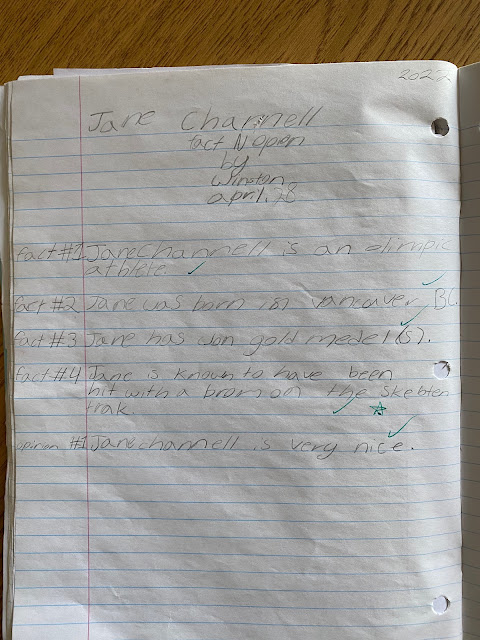 2022
Jane Channell
fact N open
by
Winston
april. 28
fact #1 Jane Channell is an olimpic
athlete.
fact #2 Jane was born in vancouver, BC.
fact #3 Jane has won gold medel(s).
fact #4 Jane is known to have been
hit with a brom on the skeleten
trak.
opinion #1 Jane channell is very nice.